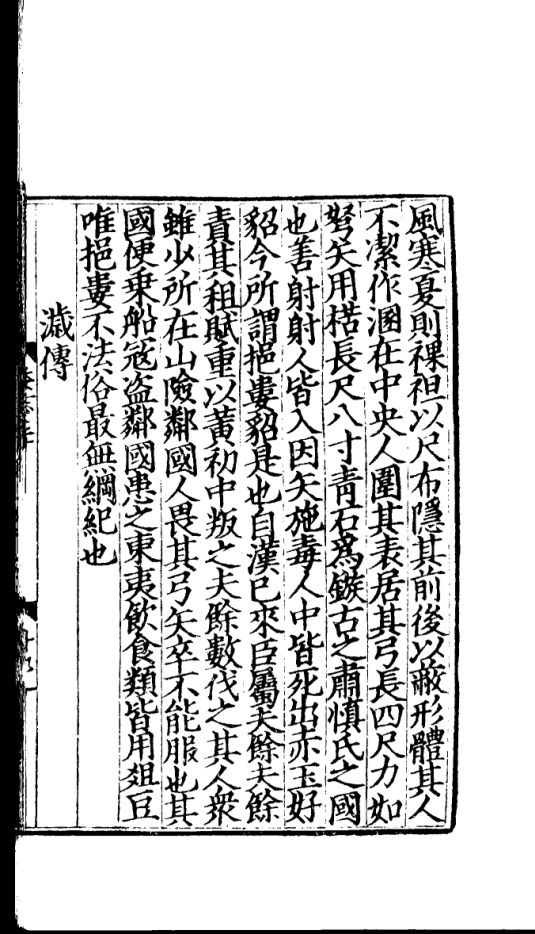 風寒夏則裸袒以尺布隱其前後以蔽形體其人
不潔作溷在中央人圍其表居其弓長四尺力如
弩矢用楛長尺八寸青石為鏃古之肅慎氏之國
也善射射人皆入因矢施毒人中皆死出赤玉好
貂今所謂挹婁貂是也自漢已來臣屬夫餘夫餘
責其租賦重以黃初中叛之夫餘數伐之其人衆
雖少所在山險鄰國人畏其弓矢卒不能服也其
國便乗船寇盗鄰國患之東夷飲食類皆用俎豆
唯挹婁不法俗最無綱紀也
濊傳